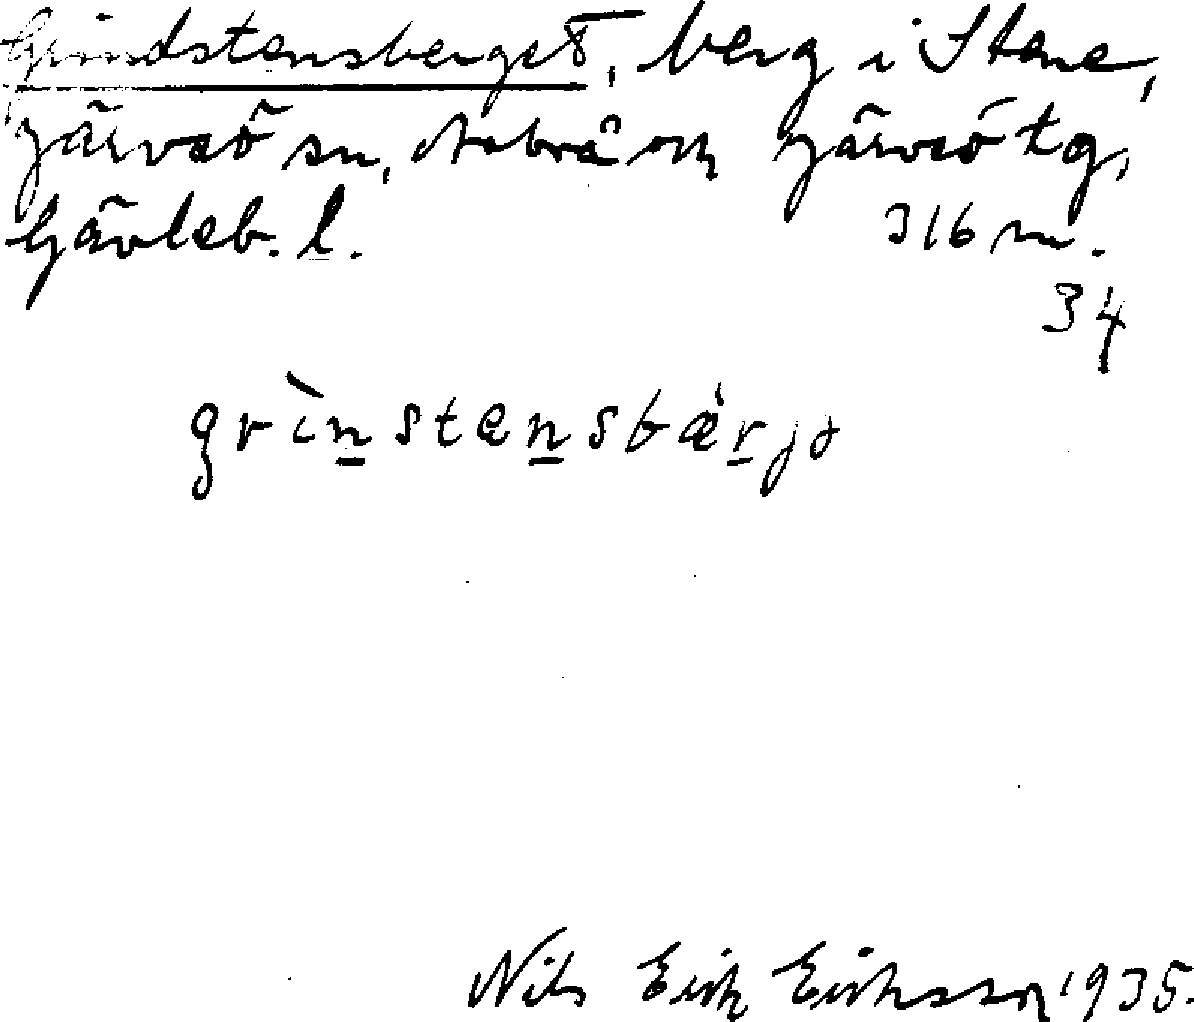 Grindstensberget, berg i Stene,
Järvsö sn, Arbrå och Järvsö tg,
Gävleb. l. 316 m.
34
grìnstensbärjə
Nils Erik Eriksson 1935.